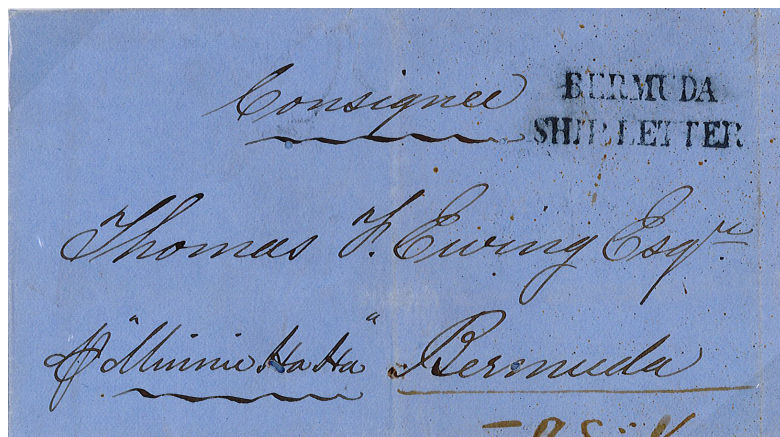 Consignee
BERMUDA
SHIP LETTER
Thomas F. Ewing Esqre
"Minnie Ha Ha" Bermuda